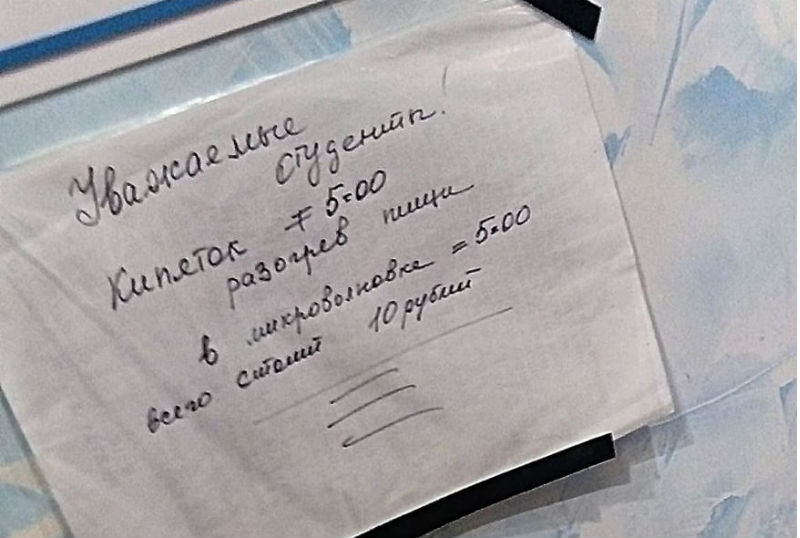 Уважаемые
студенты!
Кипяток = 5=00
разогрев пищи
в микроволновке = 5=00
всего стоит 10 рублий